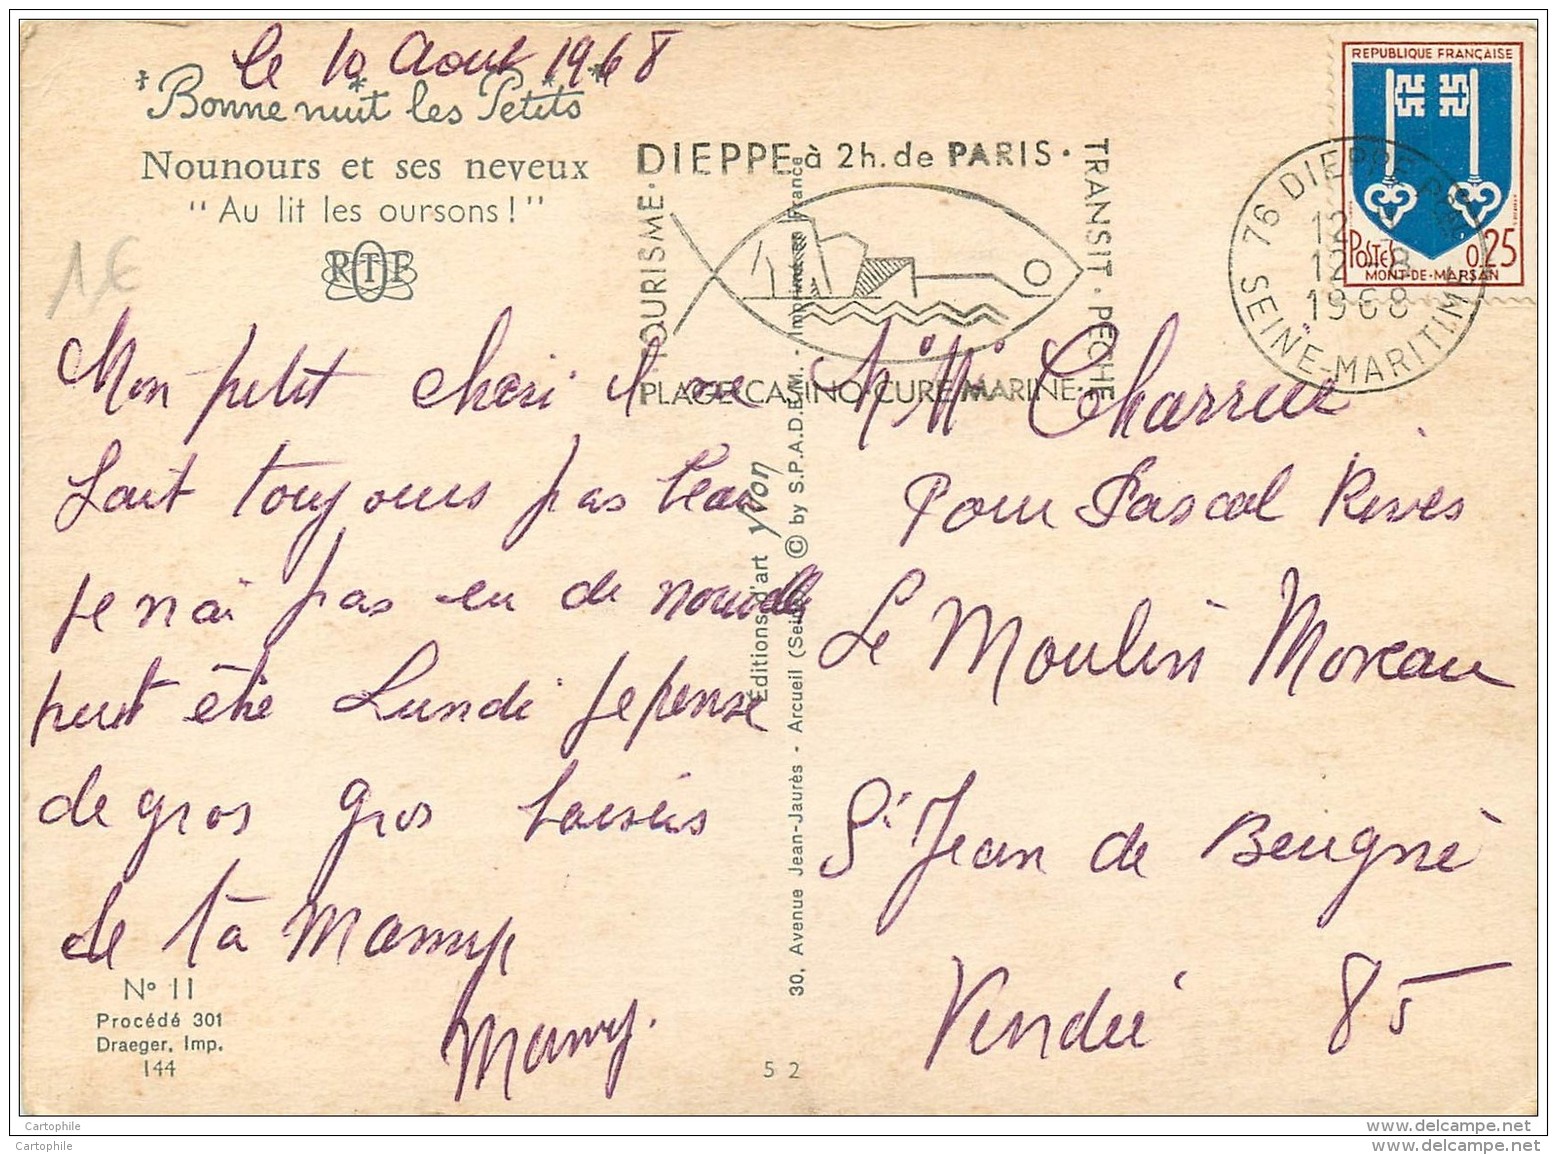 le 10 Aout 1968
Bonne nuit les Petits
Nounours et ses neveux
"Au lit les oursons!"
RTF
1€
Mon petit cheri il ne
fait toujours pas beau
je nai pas eu de nouvelle
peut être Lundi je pense
de gros gros baisers
de ta Mamy
Mamy.
N° 11
Procédé 301
Draeger, Imp.
144
DIEPPE à 2h. de PARIS.
TOURISME.
TRANSIT. PECHE
PLAGE.CASINO.CURE MARINE.
Éditions d'art yvon
30, Avenue Jean-Jaurès - Arcueil (Seine) © by S.P.A.D.E.M. - Imprimé en France
5 2
REPUBLIQUE FRANÇAISE
POSTES 0,25
MONT-DE-MARSAN
76 DIEPPE
12
12 - 8
1968
SEINE-MARITIME
Mr Mme Charrue
Pour Pascal Rives
Le Moulin Moreau
St Jean de Beugné
Vendée 85
Cartophile
delcampe.net
Cartophile
delcampe.net